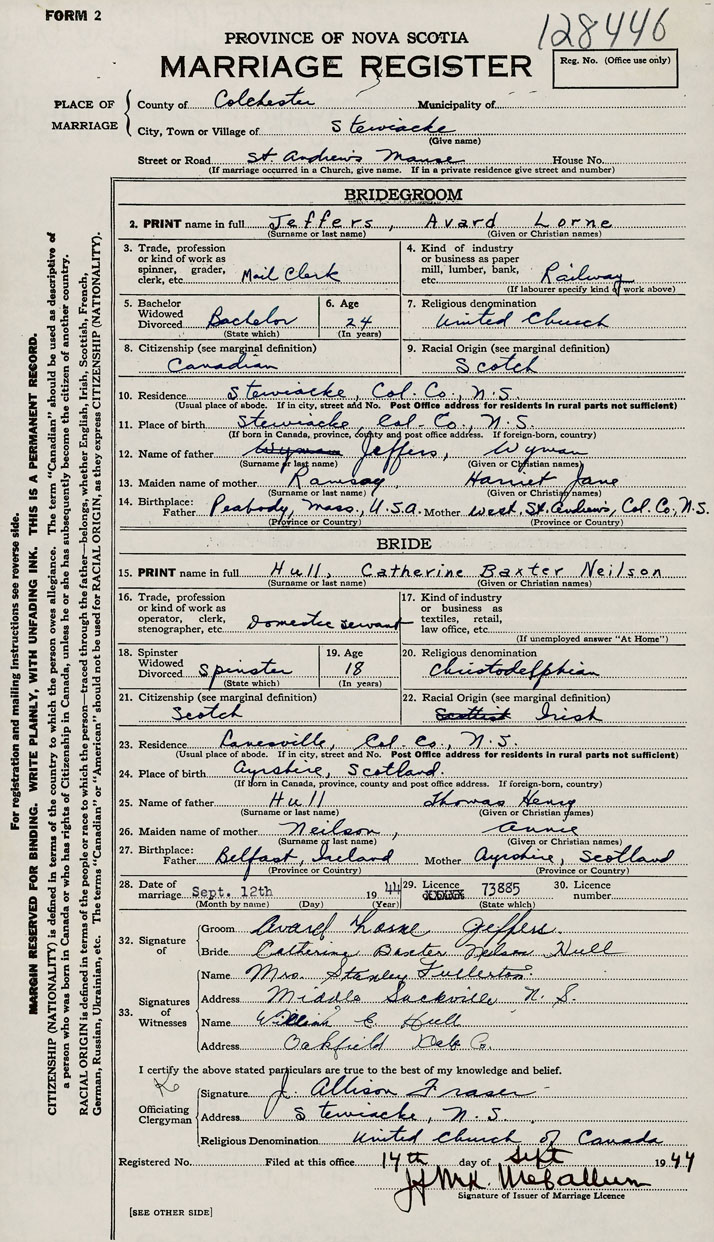 FORM 2
128446
PROVINCE OF NOVA SCOTIA
MARRIAGE REGISTER
Reg. No. (Office use only)
PLACE OF MARRIAGE
County of Colchester Municipality of
City, Town or Village of Stewiacke
(Give name)
Street or Road St. Andrew's Manse House No.
(If marriage occurred in a Church, give name. If in a private residence give street and number)
BRIDEGROOM
2. PRINT name in full Jeffers, Avard Lorne
(Surname or last name) (Given or Christian names)
3. Trade, profession or kind of work as spinner, grader, clerk, etc. Mail Clerk
4. Kind of industry or business as paper mill, lumber, bank, etc. Railway
(If labourer specify kind of work above)
5. Bachelor Widowed Divorced Bachelor
(State which)
6. Age 24
(In years)
7. Religious denomination United Church
8. Citizenship (see marginal definition) Canadian
9. Racial Origin (see marginal definition) Scotch
10. Residence Stewiacke, Col. Co., N.S.
(Usual place of abode. If in city, street and No. Post Office address for residents in rural parts not sufficient)
11. Place of birth Stewiacke, Col. Co., N.S.
(If born in Canada, province, county and post office address. If foreign-born, country)
12. Name of father Wyman Jeffers, Wyman
(Surname or last name) (Given or Christian names)
13. Maiden name of mother Ramsay, Harriet Jane
(Surname or last name) (Given or Christian names)
14. Birthplace: Father Peabody, Mass., U.S.A. Mother West St. Andrews, Col. Co., N.S.
(Province or Country) (Province or Country)
BRIDE
15. PRINT name in full Hull, Catherine Baxter Neilson
(Surname or last name) (Given or Christian names)
16. Trade, profession or kind of work as operator, clerk, stenographer, etc. Domestic servant
17. Kind of industry or business as textiles, retail, law office, etc.
(If unemployed answer "At Home")
18. Spinster Widowed Divorced Spinster
(State which)
19. Age 18
(In years)
20. Religious denomination Christodelphian
21. Citizenship (see marginal definition) Scotch
22. Racial Origin (see marginal definition) Scottish Irish
23. Residence Lanesville, Col. Co., N.S.
(Usual place of abode. If in city, street and No. Post Office address for residents in rural parts not sufficient)
24. Place of birth Ayrshire, Scotland.
(If born in Canada, province, county and post office address. If foreign-born, country)
25. Name of father Hull Thomas Henry
(Surname or last name) (Given or Christian names)
26. Maiden name of mother Neilson, Annie
(Surname or last name) (Given or Christian names)
27. Birthplace: Father Belfast, Ireland Mother Ayrshire, Scotland
(Province or Country) (Province or Country)
28. Date of marriage Sept. 12th 1944
(Month by name) (Day) (Year)
29. Licence 73885
(State which)
30. Licence number
32. Signature of
Groom Avard Lorne Jeffers.
Bride Catherine Baxter Neilson Hull
33. Signatures of Witnesses
Name Mrs. Stanley Fullerton.
Address Middle Sackville N. S.
Name William E. Hull
Address Oakfield Co.
I certify the above stated particulars are true to the best of my knowledge and belief.
Officiating Clergyman
Signature J. Allison Fraser
Address Stewiacke, N.S.
Religious Denomination United Church of Canada
Registered No. Filed at this office 14th day of Sept 1944
McCallum
Signature of Issuer of Marriage Licence
[SEE OTHER SIDE]
For registration and mailing instructions see reverse side.
MARGIN RESERVED FOR BINDING. WRITE PLAINLY, WITH UNFADING INK. THIS IS A PERMANENT RECORD.
CITIZENSHIP (NATIONALITY) is defined in terms of the country to which the person owes allegiance. The term "Canadian" should be used as descriptive of
a person who was born in Canada or who has rights of Citizenship in Canada, unless he or she has subsequently become the citizen of another country.
RACIAL ORIGIN is defined in terms of the people or race to which the person—traced through the father—belongs, whether English, Irish, Scottish, French,
German, Russian, Ukrainian, etc. The terms "Canadian" or "American" should not be used for RACIAL ORIGIN, as they express CITIZENSHIP (NATIONALITY).